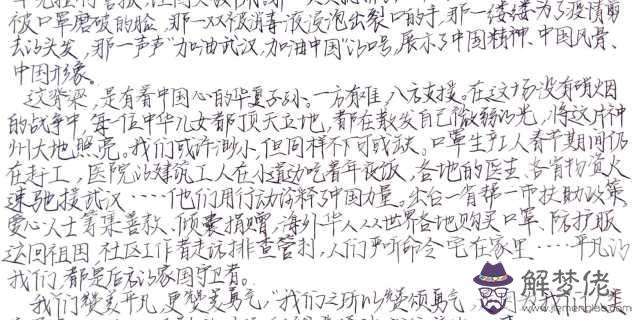 被口罩磨破的脸，那一双双被消毒液浸泡出裂口的手，那一缕缕为了疫情剪
去的头发，那一声声“加油武汉，加油中国”的口号，展示了中国精神、中国风骨、
中国形象。
这脊梁，是有着中国心的华夏子孙。一方有难，八方支援。在这场没有硝烟
的战争中，每一位中华儿女都顶天立地，都在散发自己微弱的光，将这片神
州大地照亮。我们或许渺小，但同样不可或缺。口罩生产工人春节期间仍
在开工，医院的建筑工人在小道边吃着年夜饭，各地的医生、各省物资火
速驰援武汉……他们用行动诠释了中国力量。出台一省帮一市扶助政策，
爱心人士筹集善款、倾囊捐赠，海外华人从世界各地购买口罩、防护服
送回祖国，社区工作者走访排查管控，人们严听命令宅在家里……平凡的
我们，都是后方的家国守卫者。
我们赞美平凡，更赞美勇气。“我们之所以赞颂勇气，
解梦佬
www.jiemenglao.com